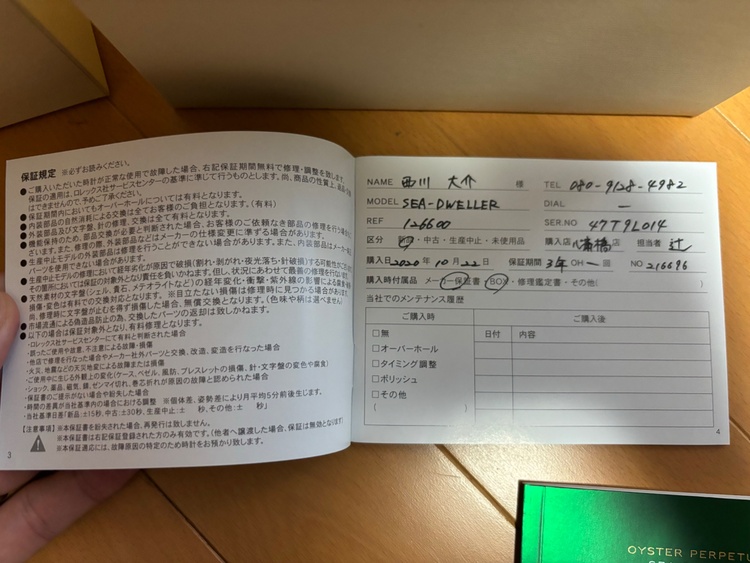 保証規定 ※必ずお読みください。
●ご購入いただいた時計が正常な使用で故障した場合、右記保証期間無料で修理・調整を致します。
保証の適用は、ロレックス社サービスセンターの基準に準じて行うものとします。尚、商品の性質上、
はできませんので、予めご了承ください。
●保証期間内においてもオーバーホールについては有料となります。
●内装部品の自然消耗による交換は全てお客様のご負担となります。(有料)
●外装部品及び文字盤、針の修理、交換は全て有料となります。
●機能保持のため、部品交換が必要と判断された場合、お客様のご依頼なき部品の修理も行う場合
また、修理の際、外装部品などはメーカーの仕様変更に準ずる場合があります。
●生産中止モデルの外装部品は修理を行うことができない場合があります。また、内装部品はメーカー
パーツを使用できない場合があります。
●生産中止モデルの修理において経年劣化が原因で破損(割れ・剥がれ・夜光落ち・針破損)する可能性が
その箇所においては保証の対象外となり責任を負いかねます。但し、状況にあわせて最善の修理を行ないま
●天然素材の文字盤(シェル、貴石、メテオライトなど)の経年変化・衝撃・紫外線の影響による業
損傷・変色は有料での交換対応となります。 ※目立たない損傷は修理時に見つかる場合があ
尚、修理時に文字盤が止むを得ず損傷した場合、無償交換となります。(色味や柄は選べません)
●市場流通による偽造品防止の為、交換したパーツの返却は致しかねます。
●以下の場合は保証対象外となり、有料修理となります。
・ロレックス社サービスセンターにて有料と判断された場合
・誤ったご使用や故意、不注意による故障・損傷
・他店で修理を行なった場合やメーカー社外パーツと交換、改造、変造を行なった場合
・火災、地震などの天災地変による故障または損傷
・ご使用中に生じる外観上の変化(ケース、ベゼル、風防、ブレスレットの損傷、針・文字盤の変色や腐食)
・ショック、薬品、磁気、錆、ゼンマイ切れ、巻芯折れが原因の故障と認められた場合
・保証書のご提示がない場合や紛失した場合
・時間の差異が当社基準内の場合における調整 ※個体差、姿勢差により月平均5分前後生じます。
・当社基準日差「新品:±15秒、中古:±30秒、生産中止:± 秒、その他:± 秒」
【注意事項】※本保証書を紛失された場合、再発行は致しません。
※本保証書は右記保証登録された方のみ有効です。(他者へ譲渡した場合、保証は無効となります)
※本保証適応には、故障原因の特定のため時計をお預かり致します。
3
NAME 西川 大介 様 TEL 080-9128-4982
MODEL SEA-DWELLER DIAL —
REF 126600 SER.NO 47T9L014
区分 新品・中古・生産中止・未使用品 購入店 店 担当者 辻
購入日 2020 年 10 月 22 日 保証期間 3年 OH 一 回 NO 216696
購入時付属品 メーカー保証書・BOX・修理鑑定書・その他(
当社でのメンテナンス履歴
ご購入時 ご購入後
□無 日付 内容
□オーバーホール
□タイミング調整
□ポリッシュ
□その他
( )
4
OYSTER PERPETU